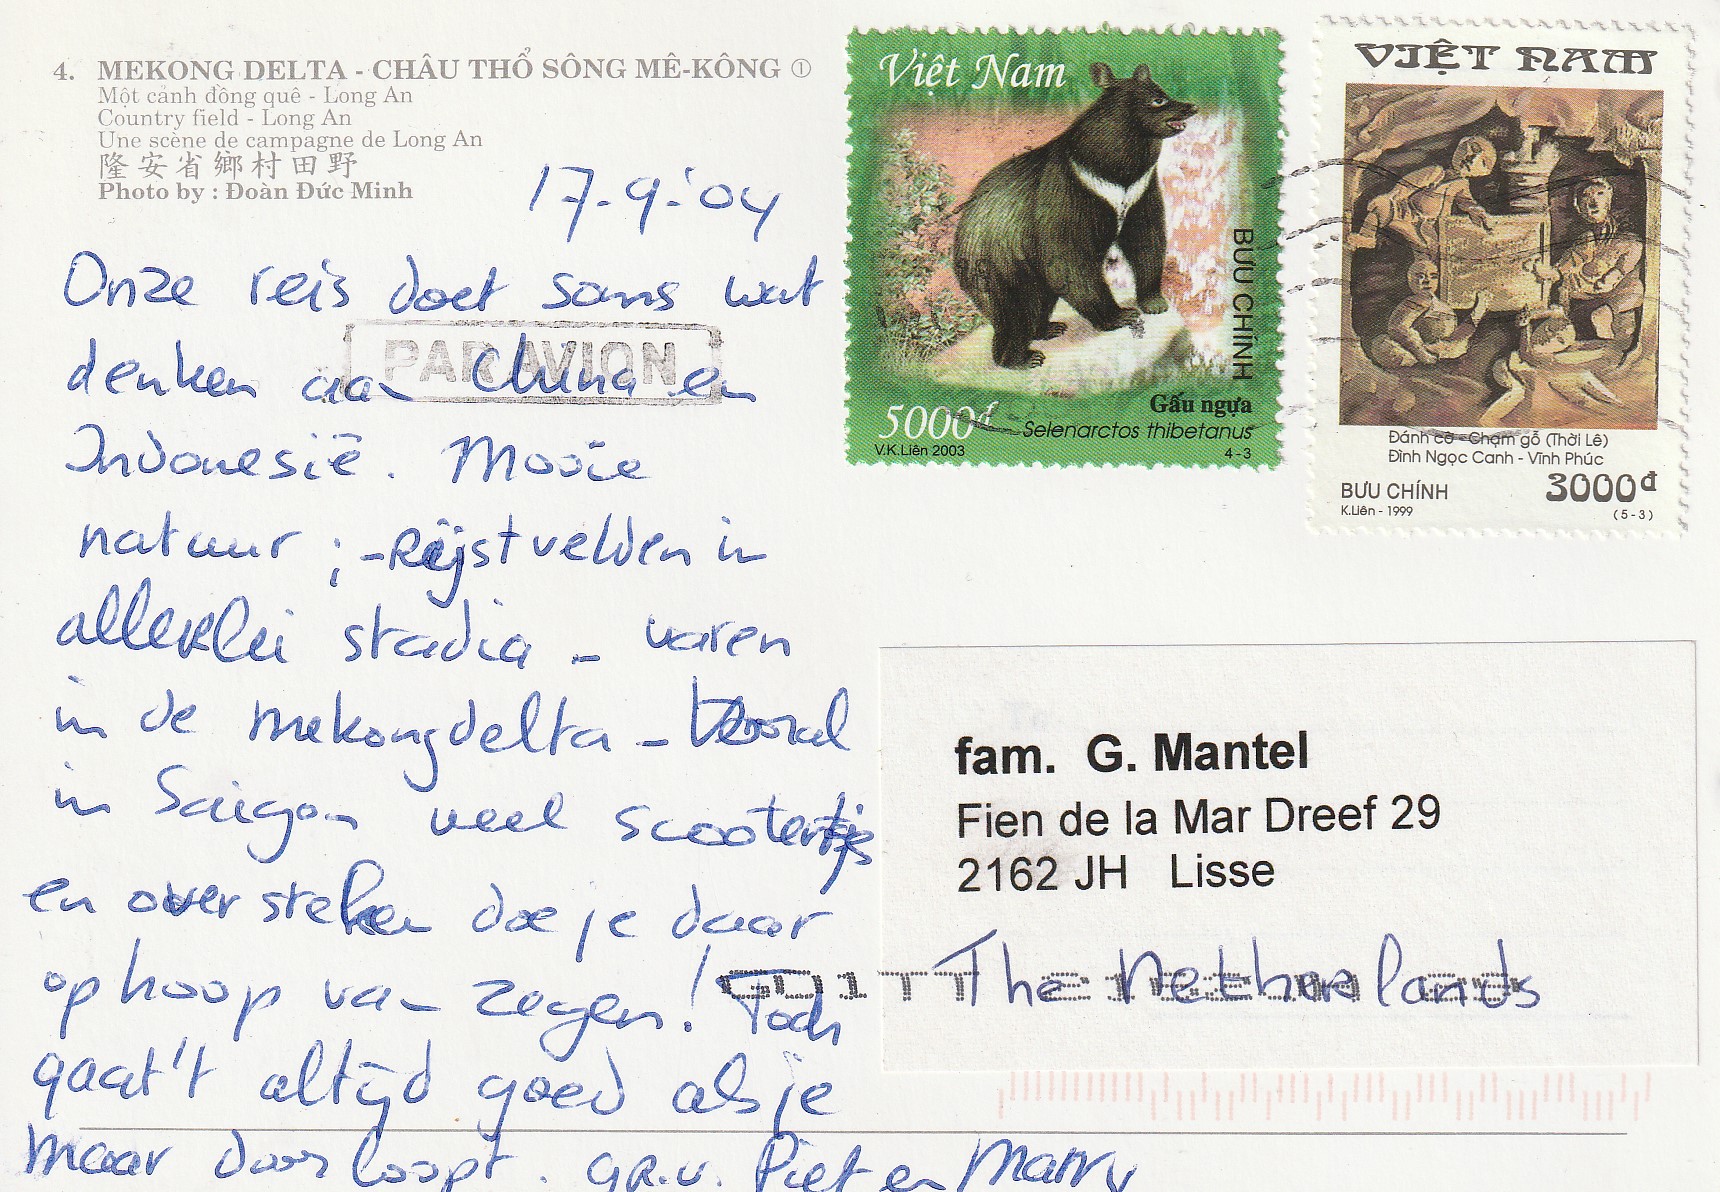 4. MEKONG DELTA - CHÂU THỔ SÔNG MÊ-KÔNG ①
Một cảnh đồng quê - Long An
Country field - Long An
Une scène de campagne de Long An
隆安省鄉村田野
Photo by : Đoàn Đức Minh
17-9-'04
Onze reis doet soms wat
denken aan China en
Indonesië. Mooie
natuur ; - Rijstvelden in
allerlei stadia - varen
in de mekongdelta - Vooral
in Saigon veel scootertjs
en oversteken doe je daar
op hoop van zegen! Toch
gaat't altijd goed als je
maar doorloopt. gr.v. Piet en Marry
PAR AVION
Việt Nam
BƯU CHÍNH
5000đ
Gấu ngựa
Selenarctos thibetanus
V.K.Liên 2003
4-3
VIỆT NAM
Đánh cờ - Chạm gỗ (Thời Lê)
Đình Ngọc Canh - Vĩnh Phúc
BƯU CHÍNH
3000đ
K.Liên - 1999
(5-3)
fam. G. Mantel
Fien de la Mar Dreef 29
2162 JH Lisse
The Netherlands